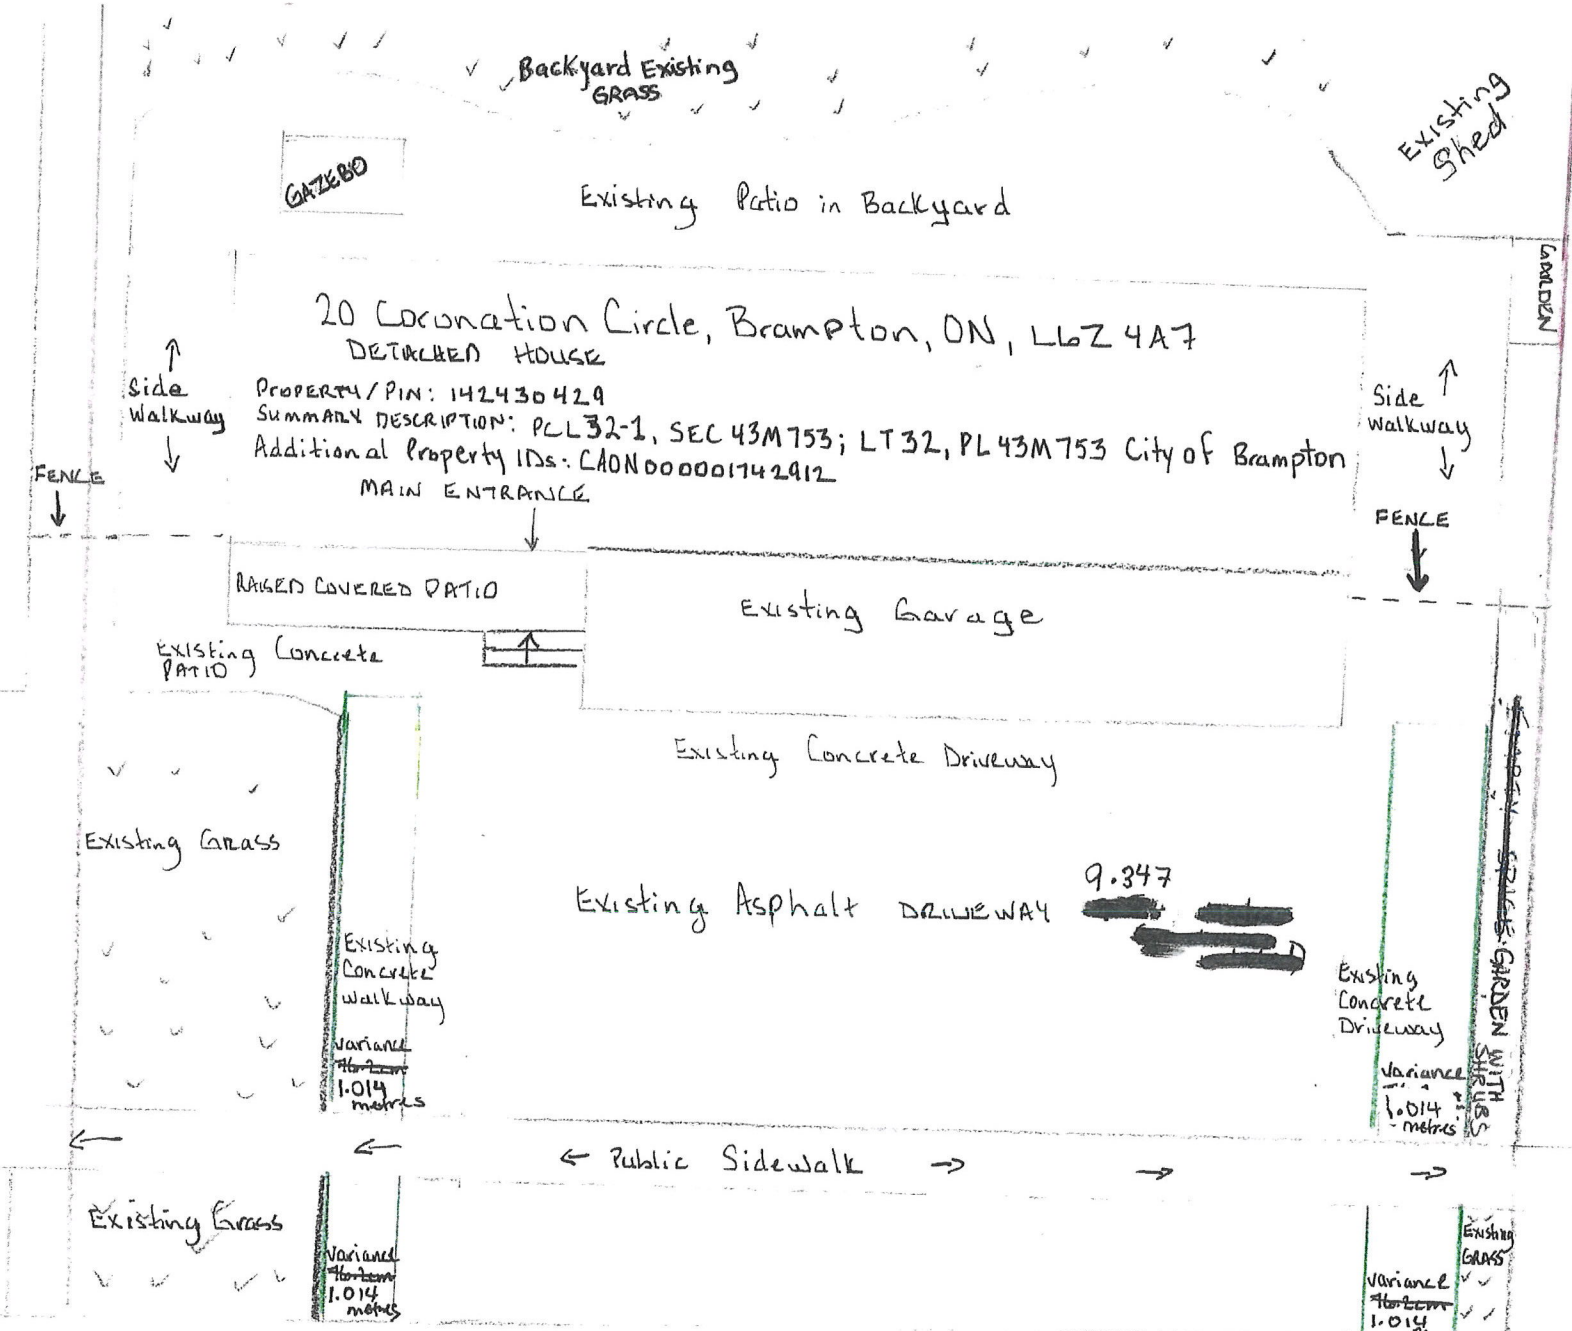 Backyard Existing
GRASS
Existing
Shed
GAZEBO
Existing Patio in Backyard
GARDEN
20 Coronation Circle, Brampton, ON, L6Z 4A7
DETACHED HOUSE
Side
Walkway
PROPERTY/PIN: 142430429
SUMMARY DESCRIPTION: PCL32-1, SEC 43M753; LT32, PL 43M753 City of Brampton
Additional Property IDs: CAON000001742912
Side
Walkway
FENCE
MAIN ENTRANCE
FENCE
RAISED COVERED PATIO
Existing Garage
Existing Concrete
PATIO
Existing Concrete Driveway
Existing Grass
9.347
Existing Asphalt DRIVEWAY
Existing
Concrete
Walkway
Variance
76.2cm
1.014
metres
Existing
Concrete
Driveway
Variance
1.014
metres
GARDEN WITH
SHRUBS
Public Sidewalk
Existing Grass
Variance
76.2cm
1.014
metres
Existing
GRASS
Variance
76.2cm
1.014